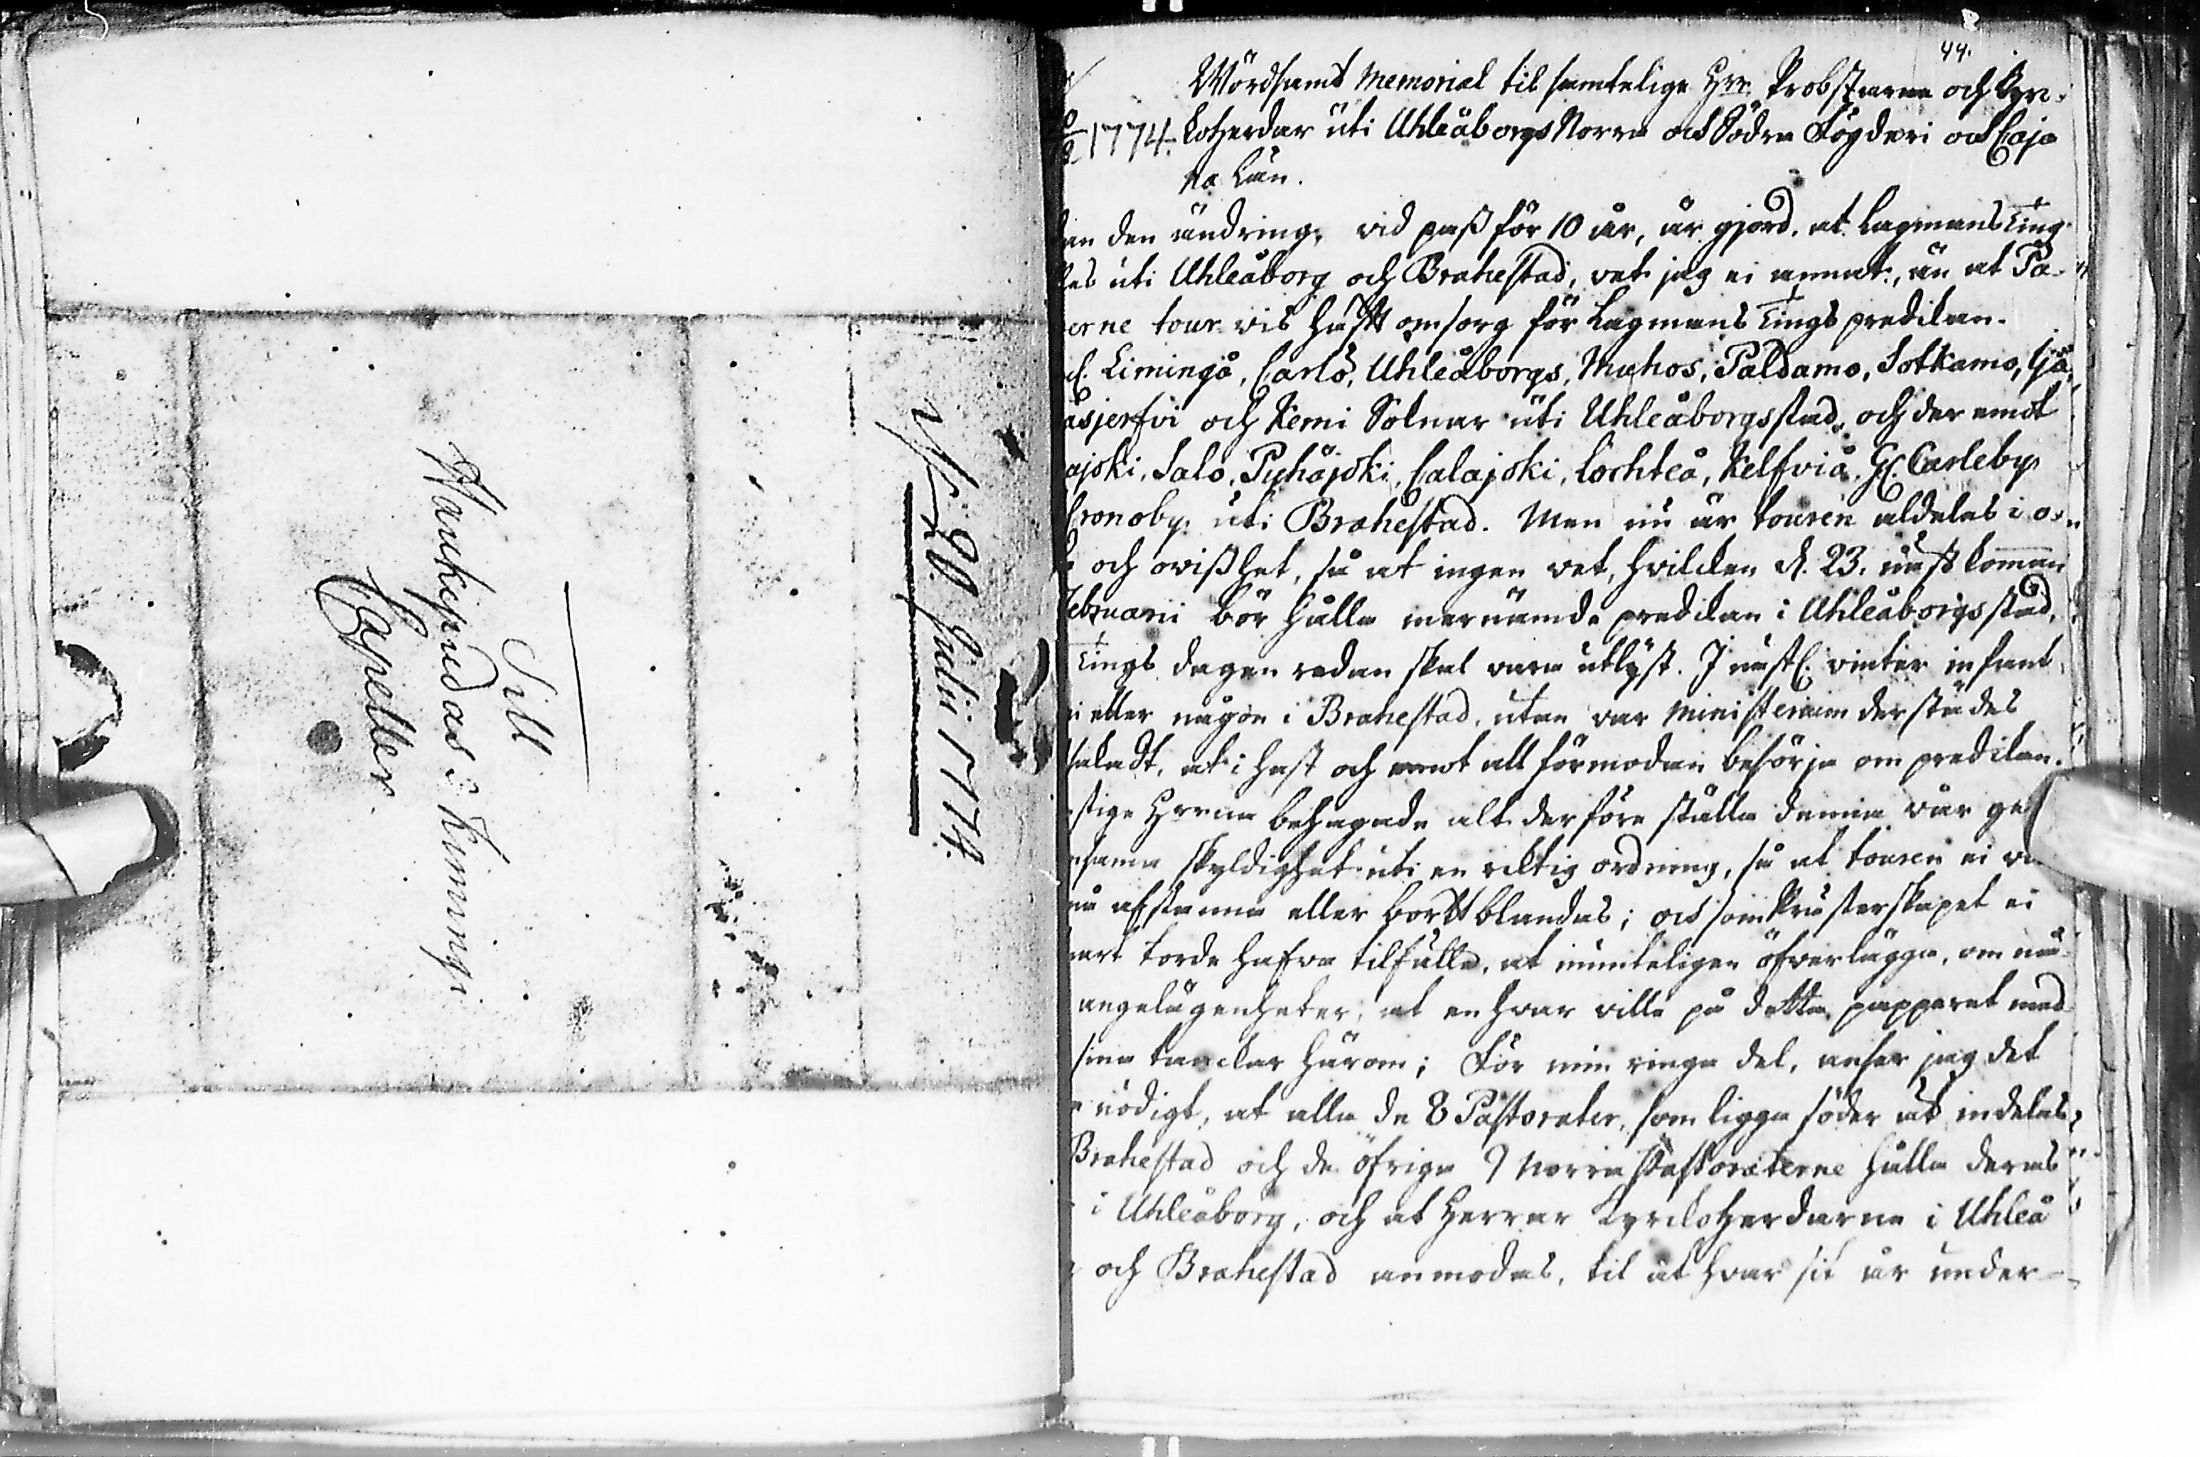 Till
Haukepudas & Kiminngi
Capeller
d. 20 Julii 1774.
44.
Wördsamt Memorial til samtelige Hrr. Probstarne och Kyrc-
1774. koherdar uti Uhleåborgs Norra och Södra Fögderi och Caja
na Län.
den ändring, vid pass för 10 år, är gjord, at Lagmans Ting
uti Uhleåborg och Brahestad, vet jag ei annat, än at Pa-
erne tour vis haft omsorg för Lagmans Tings predikan.
Limingå, Carlö, Uhleåborgs, Muhos, Paldamo, Sotkamo, Ijå,
åsjerfvi och Kemi Soknar uti Uhleåborgs stad, och der emot
ajoki, Salo, Pyhäjoki, Calajoki, Lochteå, Kelfviå, Gl. Carleby
Cronoby uti Brahestad. Men nu är touren aldeles i o-
och ovisshet, så at ingen vet, hvilken d. 23. näst komman
Februarii bör hålla mernämde predikan i Uhleåborgs stad,
Tings dagen redan skal vara utlyst. I nästl. vinter infant
ei eller någon i Brahestad, utan var Ministerium derstädes
at i hast och emot all förmodan besörja om predikan.
Herrar behagade alt derföre ställa denna vår ge
sama skyldighet uti en richtig ordning, så at touren ei
afstanna eller bortblandas; och som Prästerskapet ei
torde hafva tilfälle, at muntligen öfverlägga, om
angelägenheter, at en hvar ville på detta papperet med
sina tanckar härom; För min ringa del, anser jag det
nödigt, at alla de 8 Pastorater, som ligga söder ut indelas
Brahestad och de öfriga 9 Norra Pastoraterne hålla deras
i Uhleåborg, och at Herrar Kyrckoherdarne i Uhleå
och Brahestad anmodas, til at hvar sit år under-